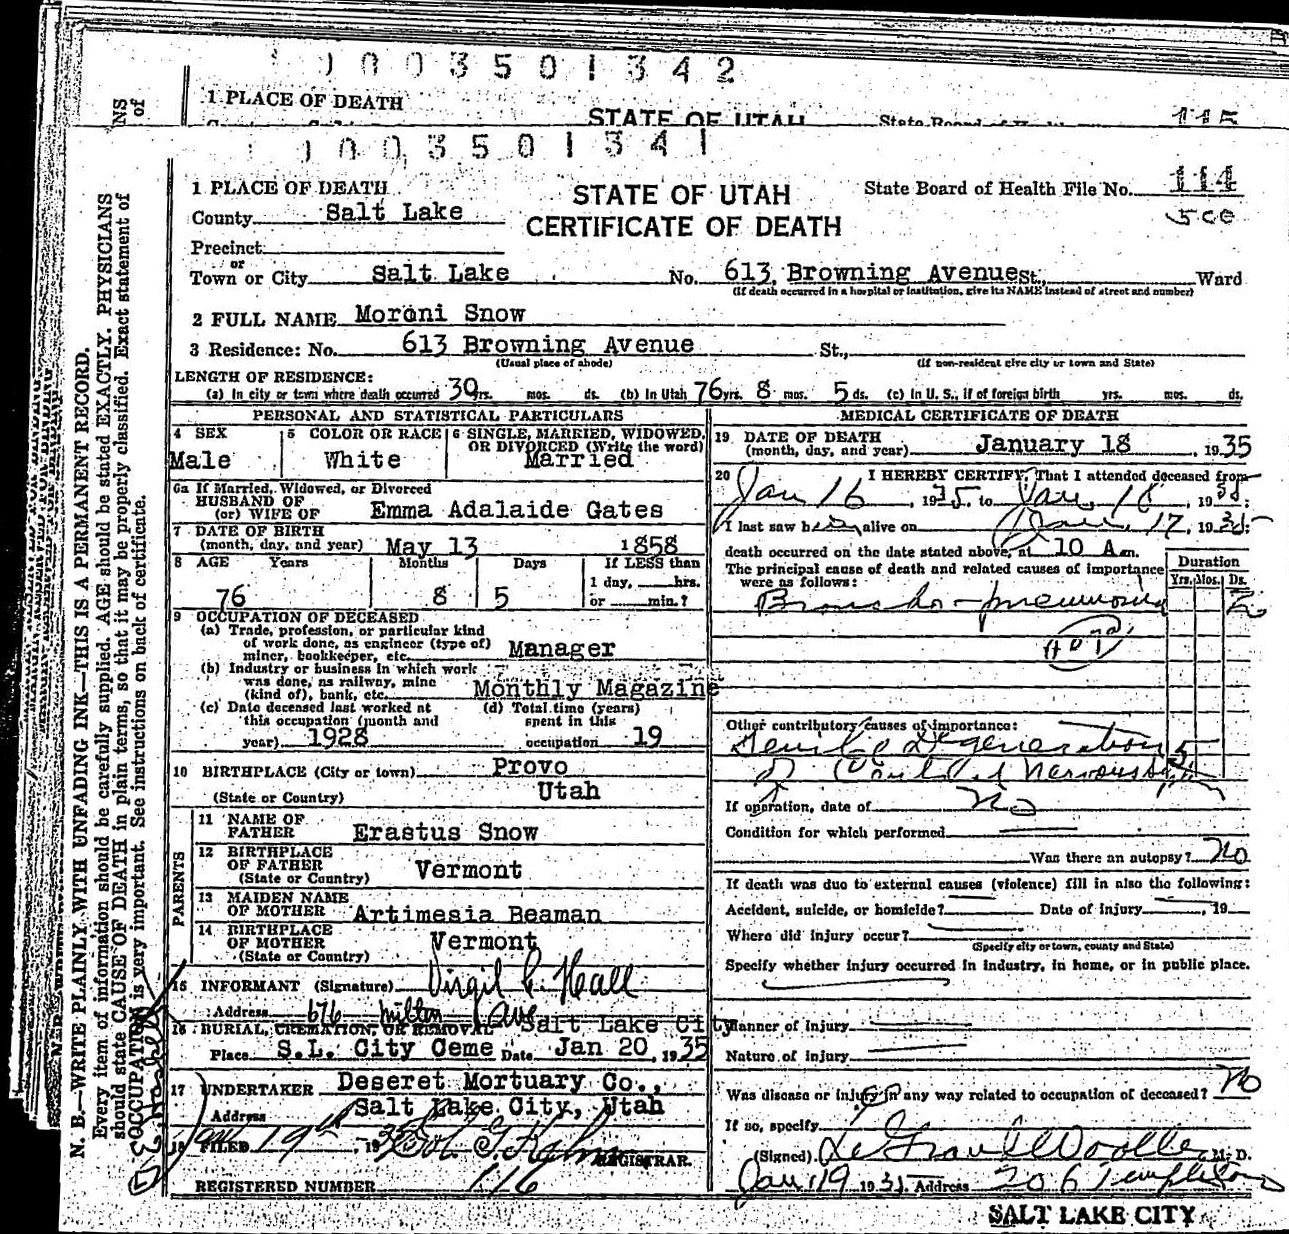 1003501342
1 PLACE OF DEATH
STATE OF UTAH
115
1003501341
1 PLACE OF DEATH
STATE OF UTAH
State Board of Health File No. 114
County Salt Lake
CERTIFICATE OF DEATH
Precinct
or
Town or City Salt Lake No. 613 Browning Avenue St., Ward
(If death occurred in a hospital or institution, give its NAME instead of street and number)
2 FULL NAME Moroni Snow
3 Residence: No. 613 Browning Avenue St.,
(Usual place of abode) (If non-resident give city or town and State)
LENGTH OF RESIDENCE:
(a) In city or town where death occurred 30 yrs. mos. ds. (b) In Utah 76 yrs. 8 mos. 5 ds. (c) In U. S., if of foreign birth yrs. mos. ds.
PERSONAL AND STATISTICAL PARTICULARS
4 SEX 5 COLOR OR RACE 6 SINGLE, MARRIED, WIDOWED,
OR DIVORCED (Write the word)
Male White Married
6a If Married, Widowed, or Divorced
HUSBAND OF
(or) WIFE OF Emma Adalaide Gates
7 DATE OF BIRTH
(month, day, and year) May 13 1858
8 AGE Years Months Days If LESS than
1 day, hrs.
76 8 5 or min.?
9 OCCUPATION OF DECEASED
(a) Trade, profession, or particular kind
of work done, as engineer (type of)
miner, bookkeeper, etc. Manager
(b) Industry or business in which work
was done, as railway, mine
(kind of), bank, etc. Monthly Magazine
(c) Date deceased last worked at (d) Total time (years)
this occupation (month and spent in this
year) 1928 occupation 19
10 BIRTHPLACE (City or town) Provo
(State or Country) Utah
PARENTS
11 NAME OF
FATHER Erastus Snow
12 BIRTHPLACE
OF FATHER Vermont
(State or Country)
13 MAIDEN NAME
OF MOTHER Artimesia Beaman
14 BIRTHPLACE
OF MOTHER Vermont
(State or Country)
15 INFORMANT (Signature) Virgil C. Hall
Address 676 Milton Ave Salt Lake City
16 BURIAL, CREMATION, OR REMOVAL
Place S.L. City Ceme Date Jan 20, 1935
17 UNDERTAKER Deseret Mortuary Co.,
Address Salt Lake City, Utah
18 FILED 19th, 1935
REGISTRAR.
REGISTERED NUMBER 116
MEDICAL CERTIFICATE OF DEATH
19 DATE OF DEATH
(month, day, and year) January 18, 1935
20 I HEREBY CERTIFY, That I attended deceased from
Jan 16, 1935, to Jan 18, 1935;
I last saw him alive on Jan 17, 1935;
death occurred on the date stated above, at 10 A m.
The principal cause of death and related causes of importance
were as follows:
Duration
Yrs. Mos. Ds.
Broncho-pneumonia 2
Other contributory causes of importance:
Senile degeneration 5
of Central Nervous
If operation, date of No
Condition for which performed
Was there an autopsy? No
If death was due to external causes (violence) fill in also the following:
Accident, suicide, or homicide? Date of injury, 19
Where did injury occur?
(Specify city or town, county and State)
Specify whether injury occurred in industry, in home, or in public place.
Manner of Injury
Nature of injury
Was disease or injury in any way related to occupation of deceased? No
If so, specify
(Signed) M. D.
Jan 19 1935 Address 206 Templeton
SALT LAKE CITY
N. B.—WRITE PLAINLY WITH UNFADING INK—THIS IS A PERMANENT RECORD.
Every item of information should be carefully supplied. AGE should be stated EXACTLY. PHYSICIANS
should state CAUSE OF DEATH in plain terms, so that it may be properly classified. Exact statement of
OCCUPATION is very important. See instructions on back of certificate.